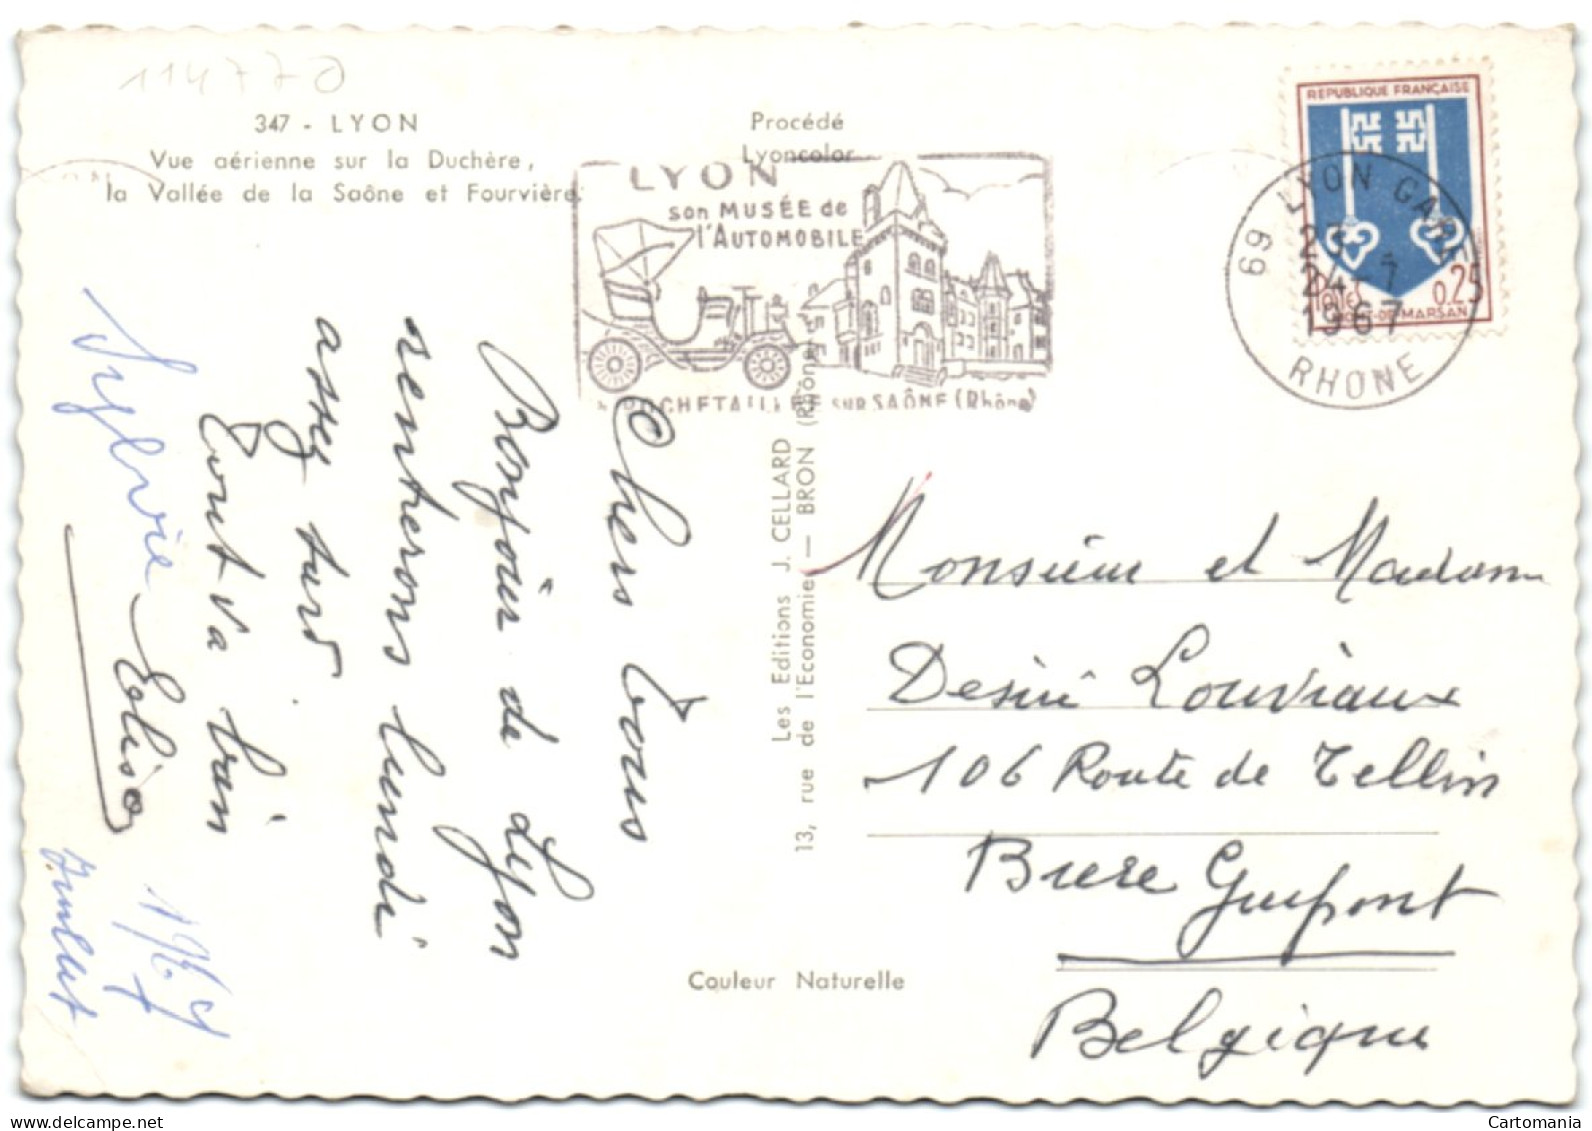 114770
347 - LYON
Vue aérienne sur la Duchère,
la Vallée de la Saône et Fourvière.
Procédé
Lyoncolor
LYON
son MUSÉE de
l'AUTOMOBILE
ROCHETAILLÉE SUR SAÔNE (Rhône)
REPUBLIQUE FRANÇAISE
0.25
MONT-DE-MARSAN
Postes
69 LYON GARE
23
24-7
1967
RHONE
Chers Vous
Bonjour de Lyon
rentrerons lundi
assez tard
Tout va bien
Sylvie
Juillet
Les Editions J. CELLARD
13, rue de l'Economie — BRON (Rhône)
Couleur Naturelle
Monsieur et Madame
Désiré Louviaux
106 Route de Tellin
Bure Grupont
Belgique
Cartomania